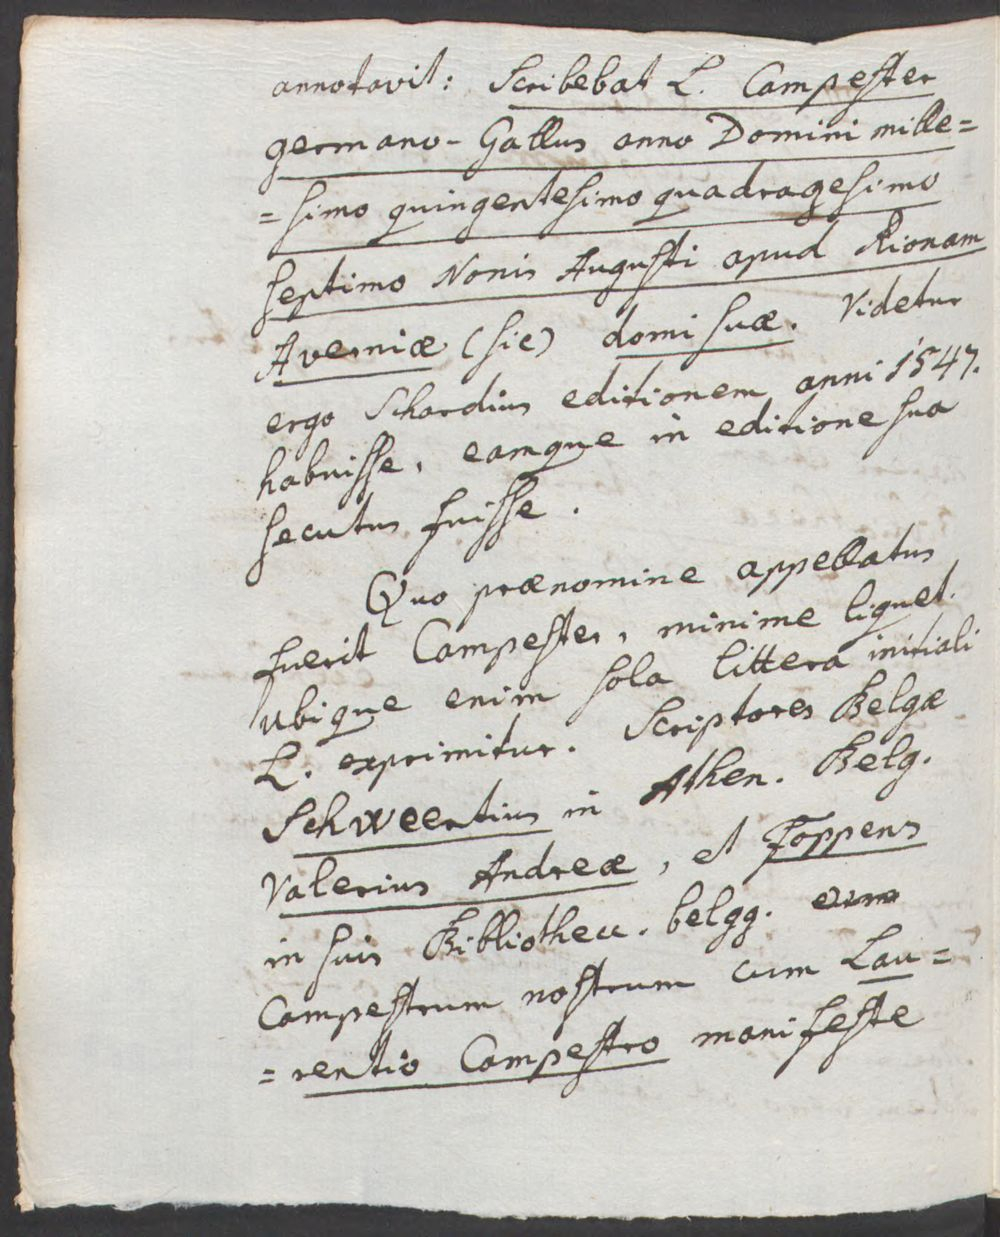 annotavit: Scribebat L. Campester
germano-Gallus anno Domini mille=
=simo quingentesimo quadragesimo
septimo Nonis Augusti apud Rionam
Averniæ (sic) domi suæ. Videtur
ergo Schardius editionem anni 1547.
habuisse, eamque in editione sua
secutus fuisse.
Quo prænomine appellatus
fuerit Campester, minime liquet.
ubique enim sola littera initiali
L. exprimitur. Scriptores Belgæ
Schweertius in Athen. Belg.
Valerius Andreæ, et Foppens
in suis Bibliothecc. belgg.
Campestrum nostrum cum Lau=
=rentio Campestro manifeste